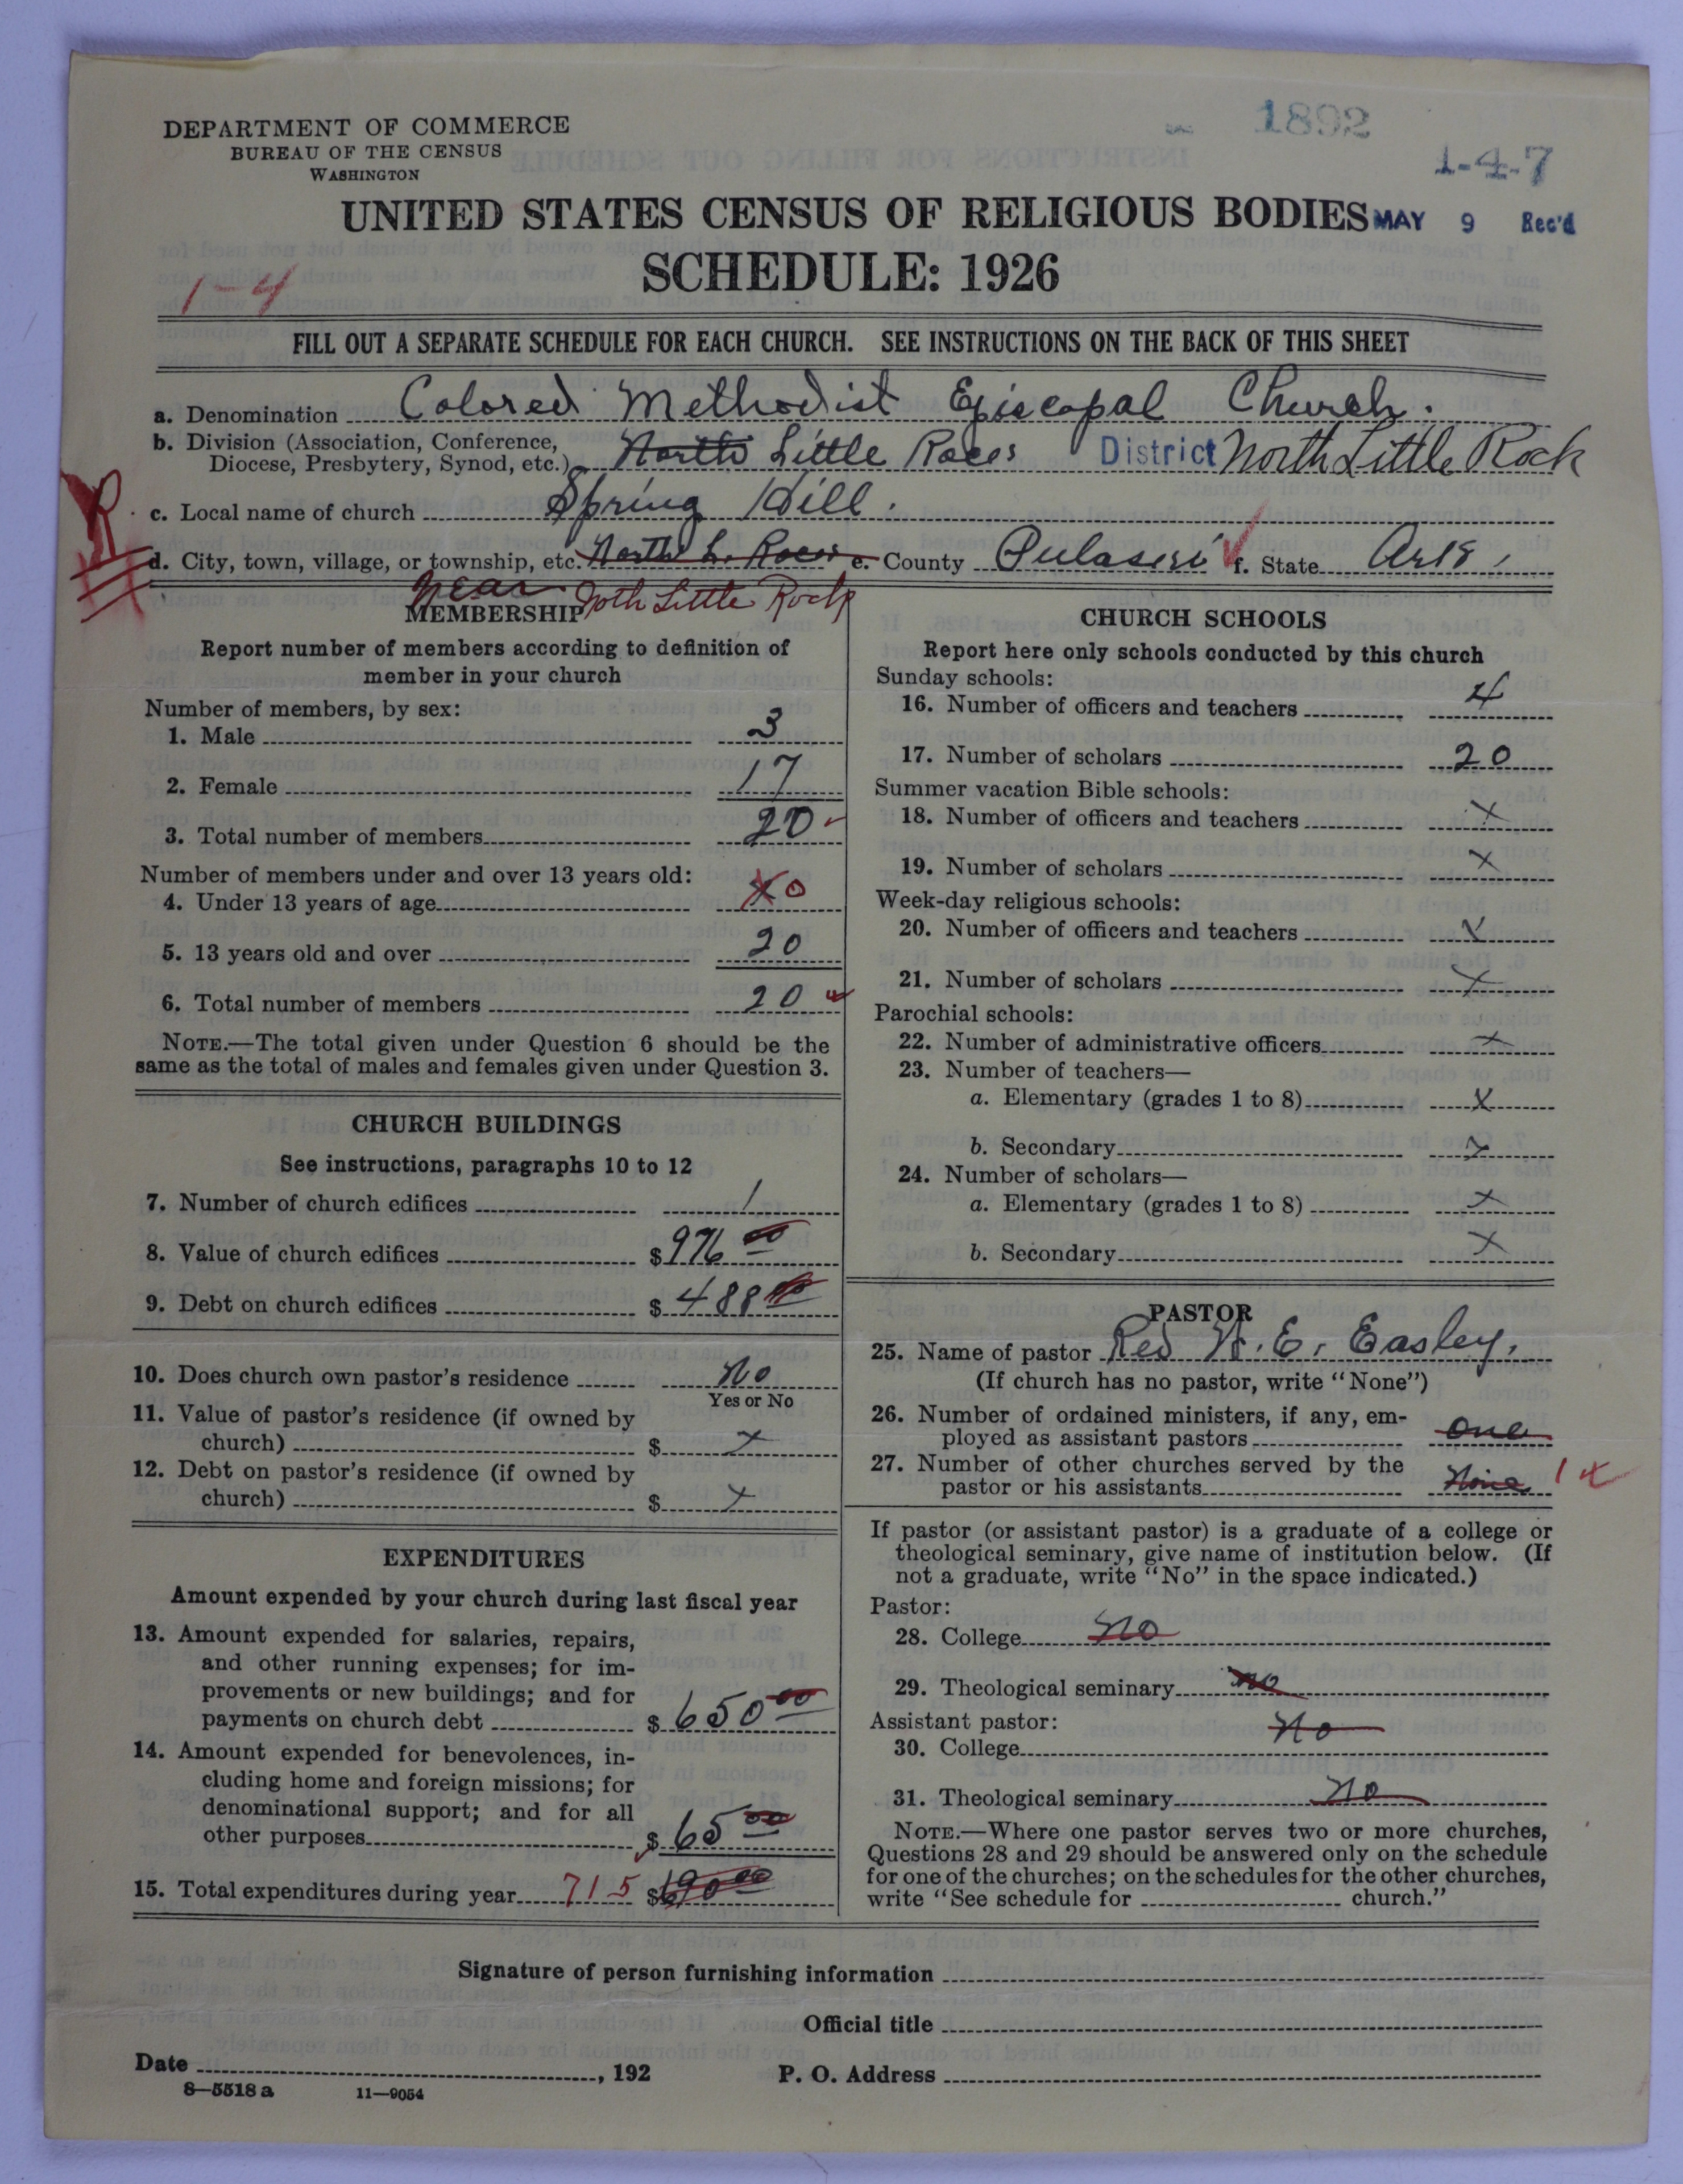 DEPARTMENT OF COMMERCE
BUREAU OF THE CENSUS
WASHINGTON
1892
1-4-7
UNITED STATES CENSUS OF RELIGIOUS BODIES MAY 9 Rec'd
SCHEDULE: 1926
1-4
FILL OUT A SEPARATE SCHEDULE FOR EACH CHURCH. SEE INSTRUCTIONS ON THE BACK OF THIS SHEET
a. Denomination Colored Methodist Episcopal Church.
b. Division (Association, Conference,
Diocese, Presbytery, Synod, etc.) North Little Rock District North Little Rock
c. Local name of church Spring Hill.
d. City, town, village, or township, etc. North L. Rock e. County Pulaski f. State Ark,
near Noth Little Rock
MEMBERSHIP
Report number of members according to definition of
member in your church
Number of members, by sex:
1. Male 3
2. Female 17
3. Total number of members 20
Number of members under and over 13 years old:
4. Under 13 years of age X 0
5. 13 years old and over 20
6. Total number of members 20
NOTE.—The total given under Question 6 should be the
same as the total of males and females given under Question 3.
CHURCH BUILDINGS
See instructions, paragraphs 10 to 12
7. Number of church edifices 1
8. Value of church edifices $976 00
9. Debt on church edifices $488 00
10. Does church own pastor's residence No
Yes or No
11. Value of pastor's residence (if owned by
church) $ X
12. Debt on pastor's residence (if owned by
church) $ X
EXPENDITURES
Amount expended by your church during last fiscal year
13. Amount expended for salaries, repairs,
and other running expenses; for im-
provements or new buildings; and for
payments on church debt $650 00
14. Amount expended for benevolences, in-
cluding home and foreign missions; for
denominational support; and for all
other purposes $65 00
15. Total expenditures during year 715 $690 00
CHURCH SCHOOLS
Report here only schools conducted by this church
Sunday schools:
16. Number of officers and teachers 4
17. Number of scholars 20
Summer vacation Bible schools:
18. Number of officers and teachers X
19. Number of scholars X
Week-day religious schools:
20. Number of officers and teachers X
21. Number of scholars X
Parochial schools:
22. Number of administrative officers X
23. Number of teachers—
a. Elementary (grades 1 to 8) X
b. Secondary X
24. Number of scholars—
a. Elementary (grades 1 to 8) X
b. Secondary X
PASTOR
25. Name of pastor Rev E. Easley.
(If church has no pastor, write "None")
26. Number of ordained ministers, if any, em-
ployed as assistant pastors one
27. Number of other churches served by the
pastor or his assistants None 1
If pastor (or assistant pastor) is a graduate of a college or
theological seminary, give name of institution below. (If
not a graduate, write "No" in the space indicated.)
Pastor:
28. College no
29. Theological seminary no
Assistant pastor:
30. College No
31. Theological seminary no
NOTE.—Where one pastor serves two or more churches,
Questions 28 and 29 should be answered only on the schedule
for one of the churches; on the schedules for the other churches,
write "See schedule for church."
Signature of person furnishing information
Official title
Date , 192
P. O. Address
8—5518 a 11—9054